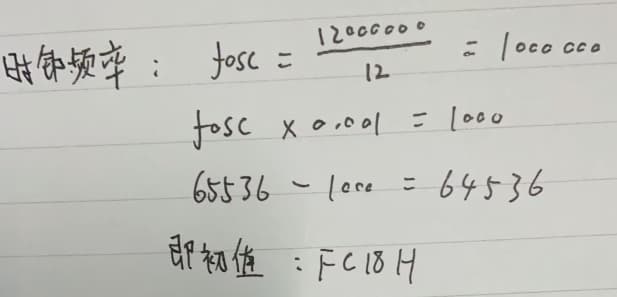 时钟频率 : fosc = 12000000 / 12 = 1000000
fosc × 0.001 = 1000
65536 - 1000 = 64536
即初值 : FC18H